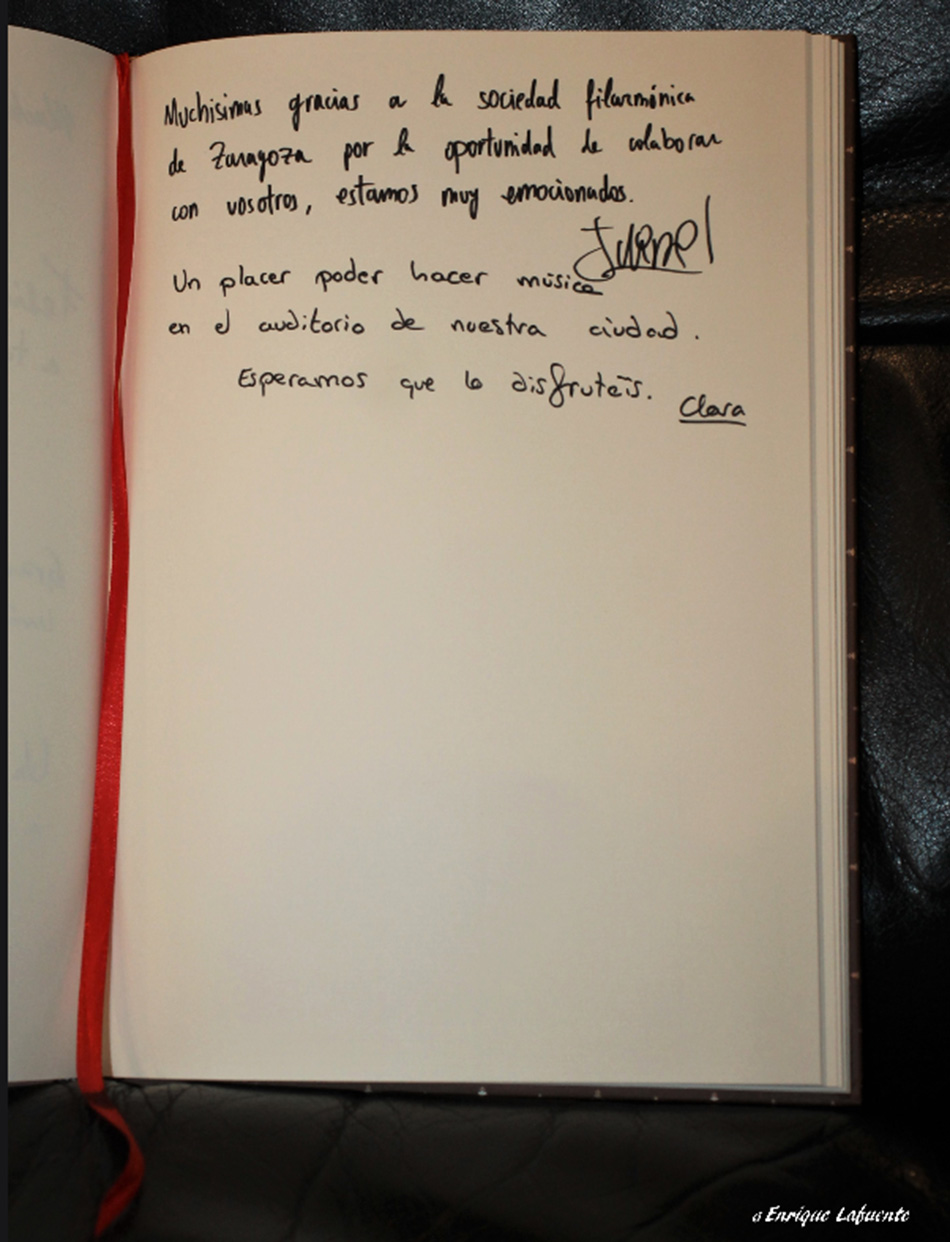 Muchisimas gracias a la sociedad filarmónica
de Zaragoza por la oportunidad de colaborar
con vosotros, estamos muy emocionados.
Un placer poder hacer música
en el auditorio de nuestra ciudad.
Esperamos que lo disfruteis.
Clara
Enrique Lafuente